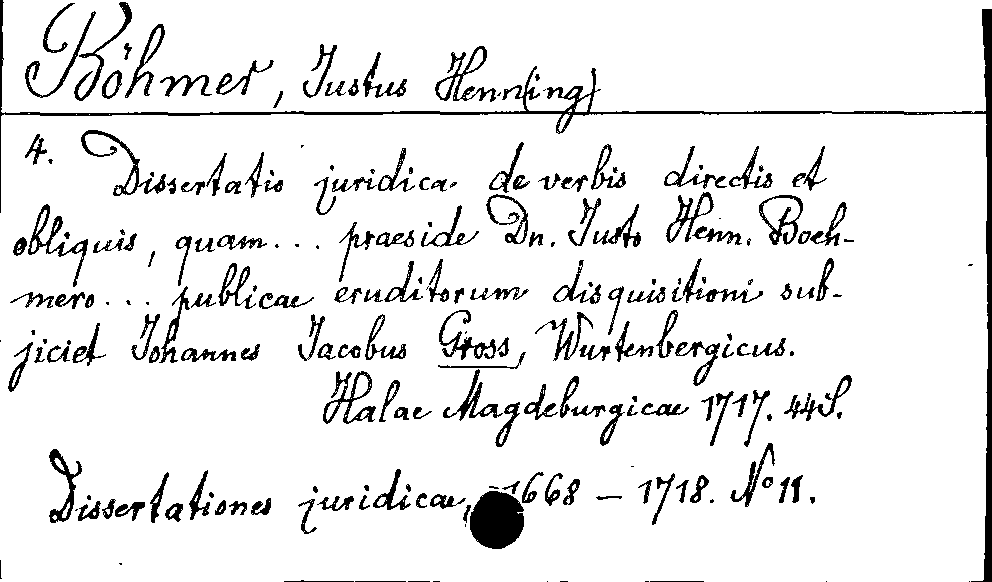 Böhmer, Justus Henn(ing)
4. Dissertatio juridica de verbis directis et
obliquis, quam... praeside Dn. Justo Henn. Boeh-
mero... publicae eruditorum disquisitioni sub-
jiciet Johannes Jacobus Gross, Wurtenbergicus.
Halae Magdeburgicae 1717. 44 S.
Dissertationes juridicae, 1668 – 1718. No 11.